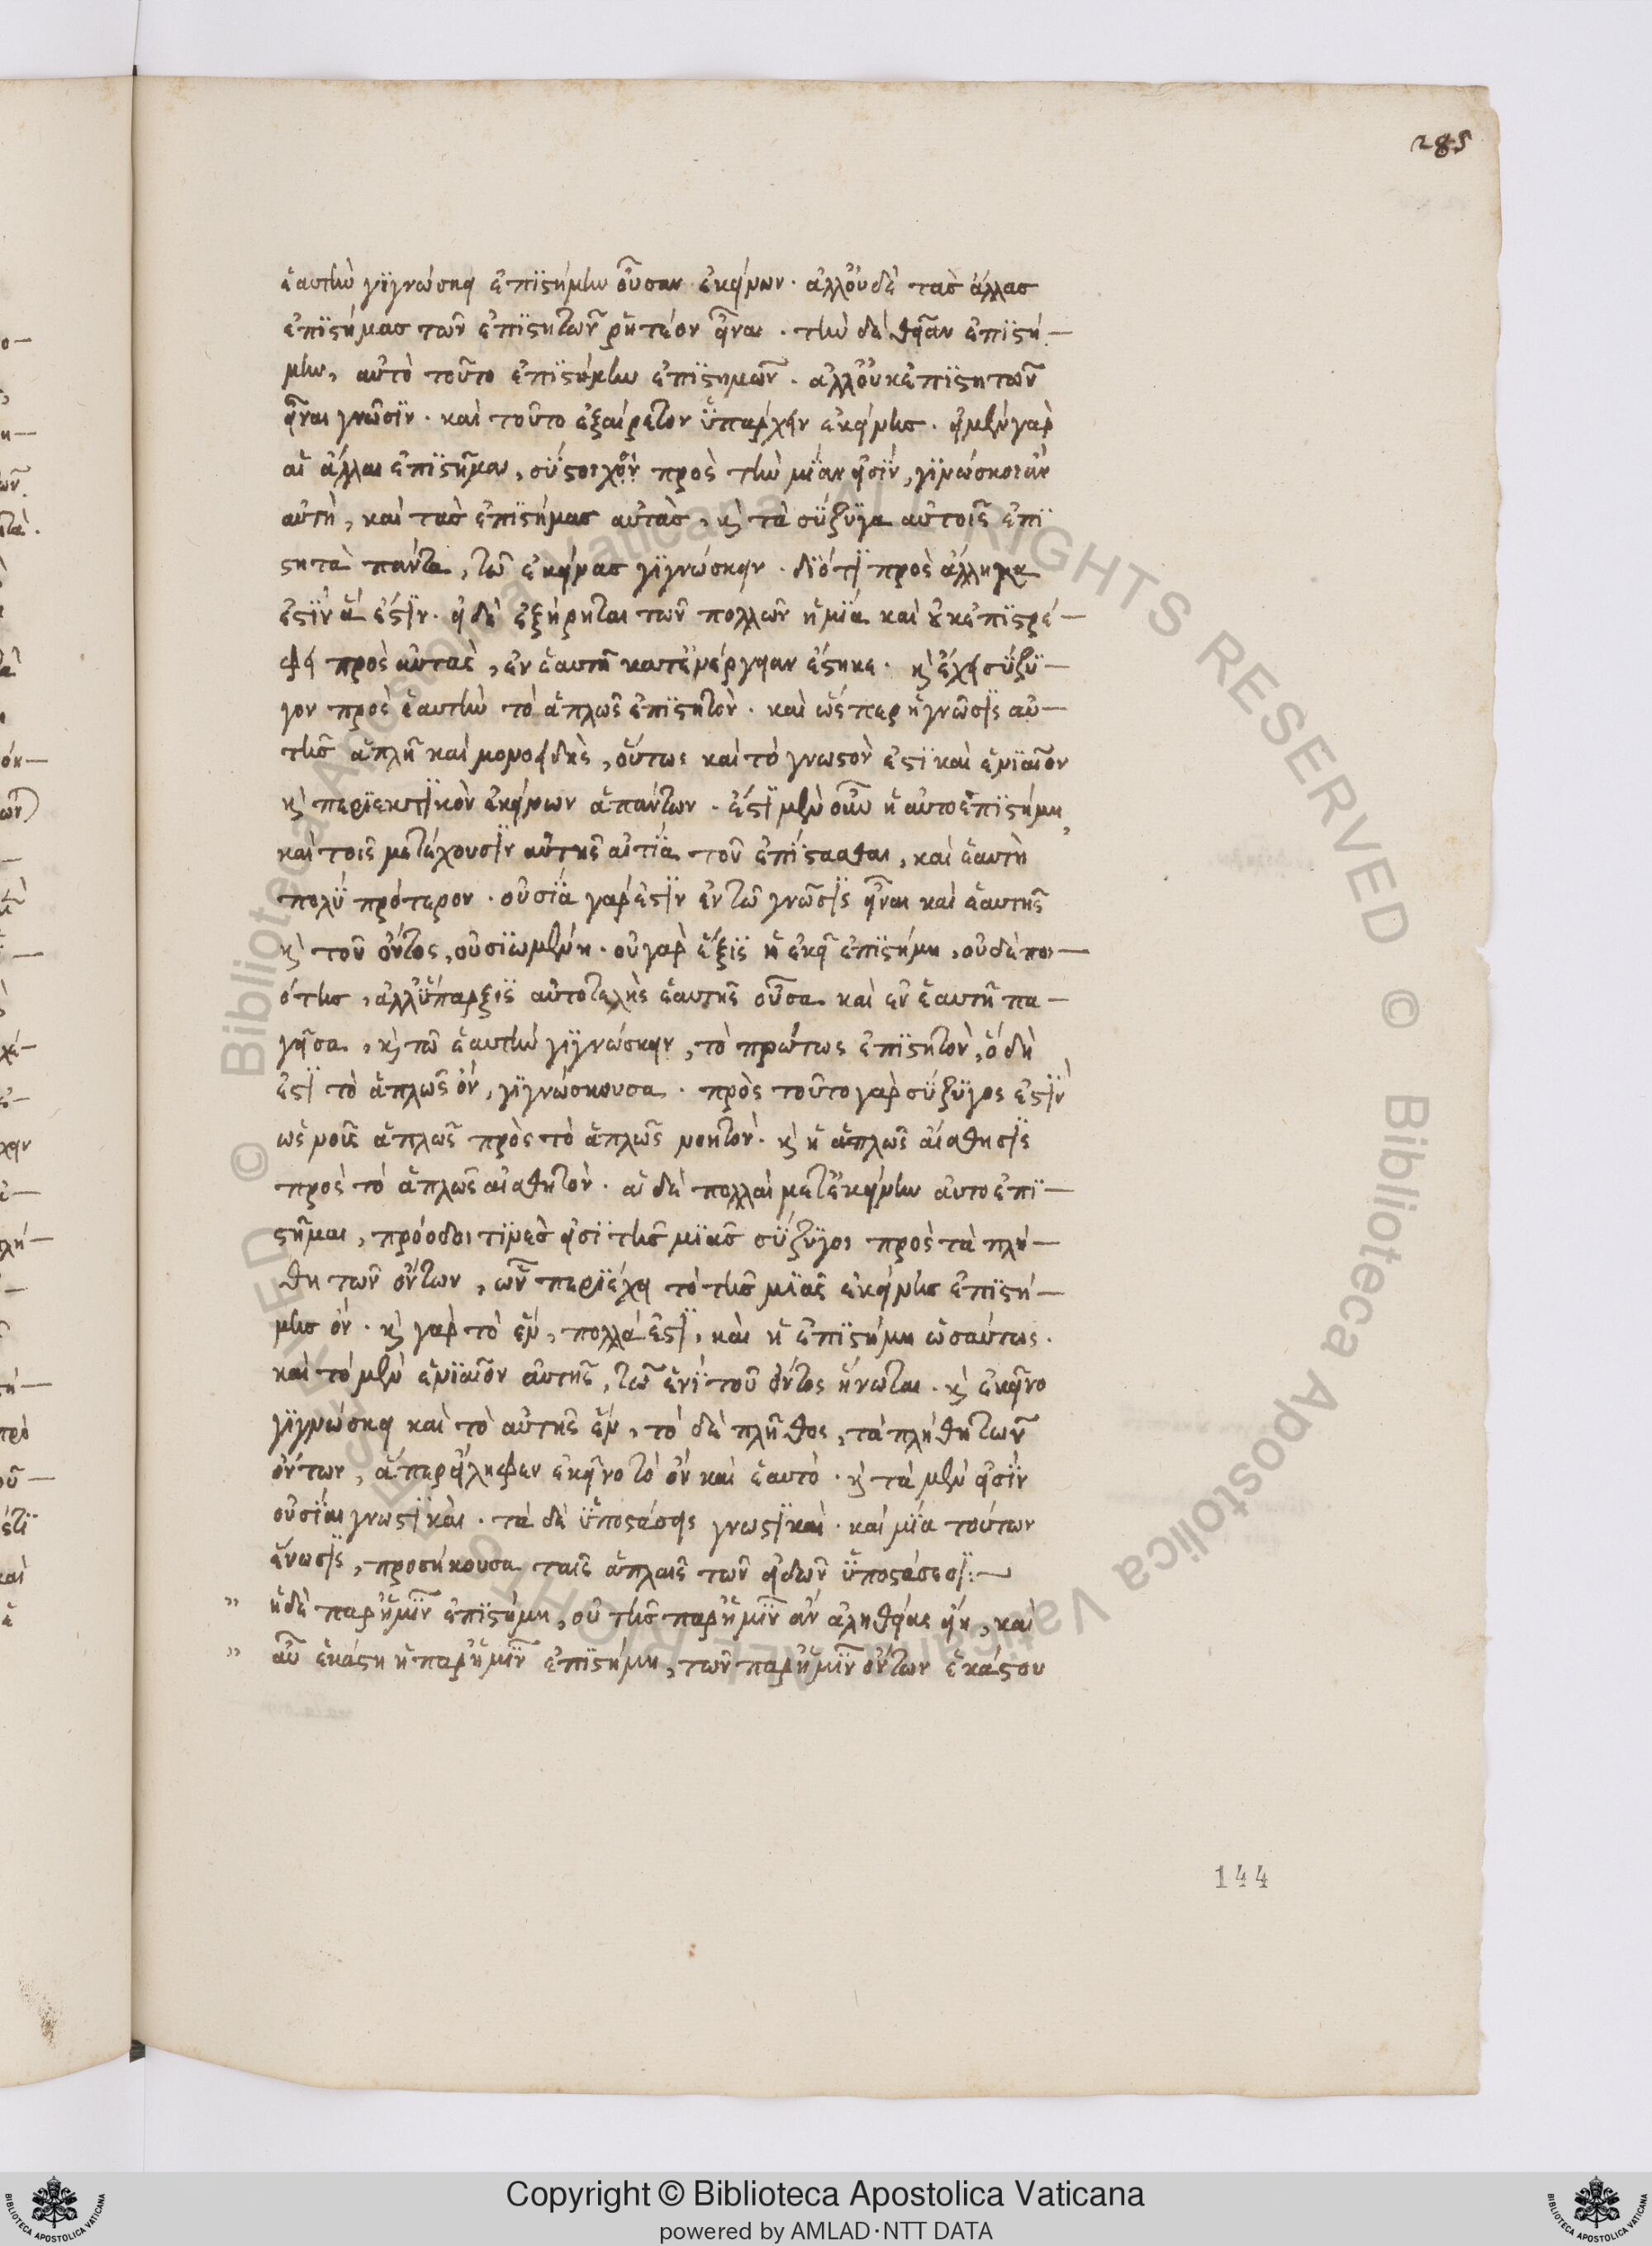 285
ἑαυτὴν γιγνώσκει ἐπιστήμην οὖσαν ἐκείνων. ἀλλ' οὐδὲ τὰς ἄλλας
ἐπιστήμας τῶν ἐπιστητῶν ῥητέον εἶναι. τὴν δὲ θείαν ἐπιστή—
μην, αὐτὸ τοῦτο ἐπιστήμην ἐπιστημῶν. ἀλλ' οὐκ ἐπιστητῶν
εἶναι γνῶσιν. καὶ τοῦτο ἐξαίρετον ὑπάρχειν ἐκείνης. εἰ μὲν γὰρ
αἱ ἄλλαι ἐπιστῆμαι, σύστοιχοι πρὸς τὴν μίαν εἰσὶν, γινώσκοι ἂν
αὐτὴ, καὶ τὰς ἐπιστήμας αὐτὰς, κ̀ τὰ σύζυγα αὐτοῖς ἐπι
στητὰ πάντα, τῶ ἐκείνας γιγνώσκειν. διότι πρὸς ἄλληλα
ἐστὶν ἅ ἐστιν. εἰ δὲ ἐξήρηται τῶν πολλῶν ἡ μία καὶ οὐκ ἐπιστρέ—
φει πρὸς αὐτὰς, ἐν ἑαυτῆ κατ' ἐνέργειαν ἕστηκε. κ̀ ἔχει σύζυ—
γον πρὸς ἑαυτὴν τὸ ἁπλῶς ἐπιστητὸν. καὶ ὥσπερ ἡ γνῶσις αὐ—
τῆς ἁπλῆ καὶ μονοειδὴς, οὕτως καὶ τὸ γνωστὸν ἐστὶ καὶ ἑνιαῖον
κ̀ περιεκτικὸν ἐκείνων ἁπάντων. ἔστι μὲν οὖν ἡ αὐτοεπιστήμη,
καὶ τοῖς μετέχουσιν αὐτῆς αἰτία τοῦ ἐπίστασθαι, καὶ ἑαυτὴ
πολὺ πρότερον. οὐσία γάρ ἐστιν ἐν τῶ γνῶσις εἶναι καὶ ἑαυτῆς
κ̀ τοῦ ὄντος, οὐσιωμένη. οὐ γὰρ ἕξις ἡ ἐκεῖ ἐπιστήμη, οὐδὲ ποι—
ότης, ἀλλ' ὕπαρξις αὐτοτελὴς ἑαυτῆς οὖσα καὶ ἐν ἑαυτῆ πα—
γεῖσα, κ̀ τῶ ἑαυτὴν γιγνώσκειν, τὸ πρώτως ἐπιστητὸν, ὃ δὴ
ἐστὶ τὸ ἁπλῶς ὂν, γιγνώσκουσα. πρὸς τοῦτο γὰρ σύζυγος ἐστὶν
ὡς νοῦς ἁπλῶς πρὸς τὸ ἁπλῶς νοητὸν. κ̀ ἡ ἁπλῶς αἴσθησις
πρὸς τὸ ἁπλῶς αἰσθητὸν. αἱ δὲ πολλαὶ μετ' ἐκείνην αὐτοεπι—
στῆμαι, πρόοδοι τινὲς εἰσὶ τῆς μιᾶς σύζυγοι πρὸς τὰ πλή—
θη τῶν ὄντων, ὧν περιέχει τὸ τῆς μιᾶς ἐκείνης ἐπιστή—
μης ὂν. κ̀ γὰρ τὸ ἓν, πολλά ἐστι, καὶ ἡ ἐπιστήμη ὡσαύτως.
καὶ τὸ μὲν ἑνιαῖον αὐτῆς, τῶ ἑνὶ τοῦ ὄντος ἥνωται. κ̀ ἐκεῖνο
γιγνώσκει καὶ τὸ αὐτῆς ἓν, τὸ δὲ πλῆθος, τὰ πλήθη τῶν
ὄντων, ἅπερ εἴληφεν ἐκεῖνο τὸ ὂν καὶ ἑαυτὸ. κ̀ τὰ μὲν εἰσὶν
οὐσίαι γνωστικαὶ. τὰ δὲ ὑποστάσεις γνωστικαὶ. καὶ μία τούτων
ἕνωσις, προσήκουσα ταῖς ἁπλαῖς τῶν εἰδῶν ὑποστάσεσι:—
" ἡ δὲ παρ' ἡμῖν ἐπιστήμη, οὐ τῆς παρ' ἡμῖν ἂν ἀληθείας εἴη, καὶ
" αὖ ἑκάστη ἡ παρ' ἡμῖν ἐπιστήμη, τῶν παρ' ἡμῖν ὄντων ἑκάστου
144
© Biblioteca Apostolica Vaticana ALL RIGHTS RESERVED
Copyright © Biblioteca Apostolica Vaticana
powered by AMLAD·NTT DATA